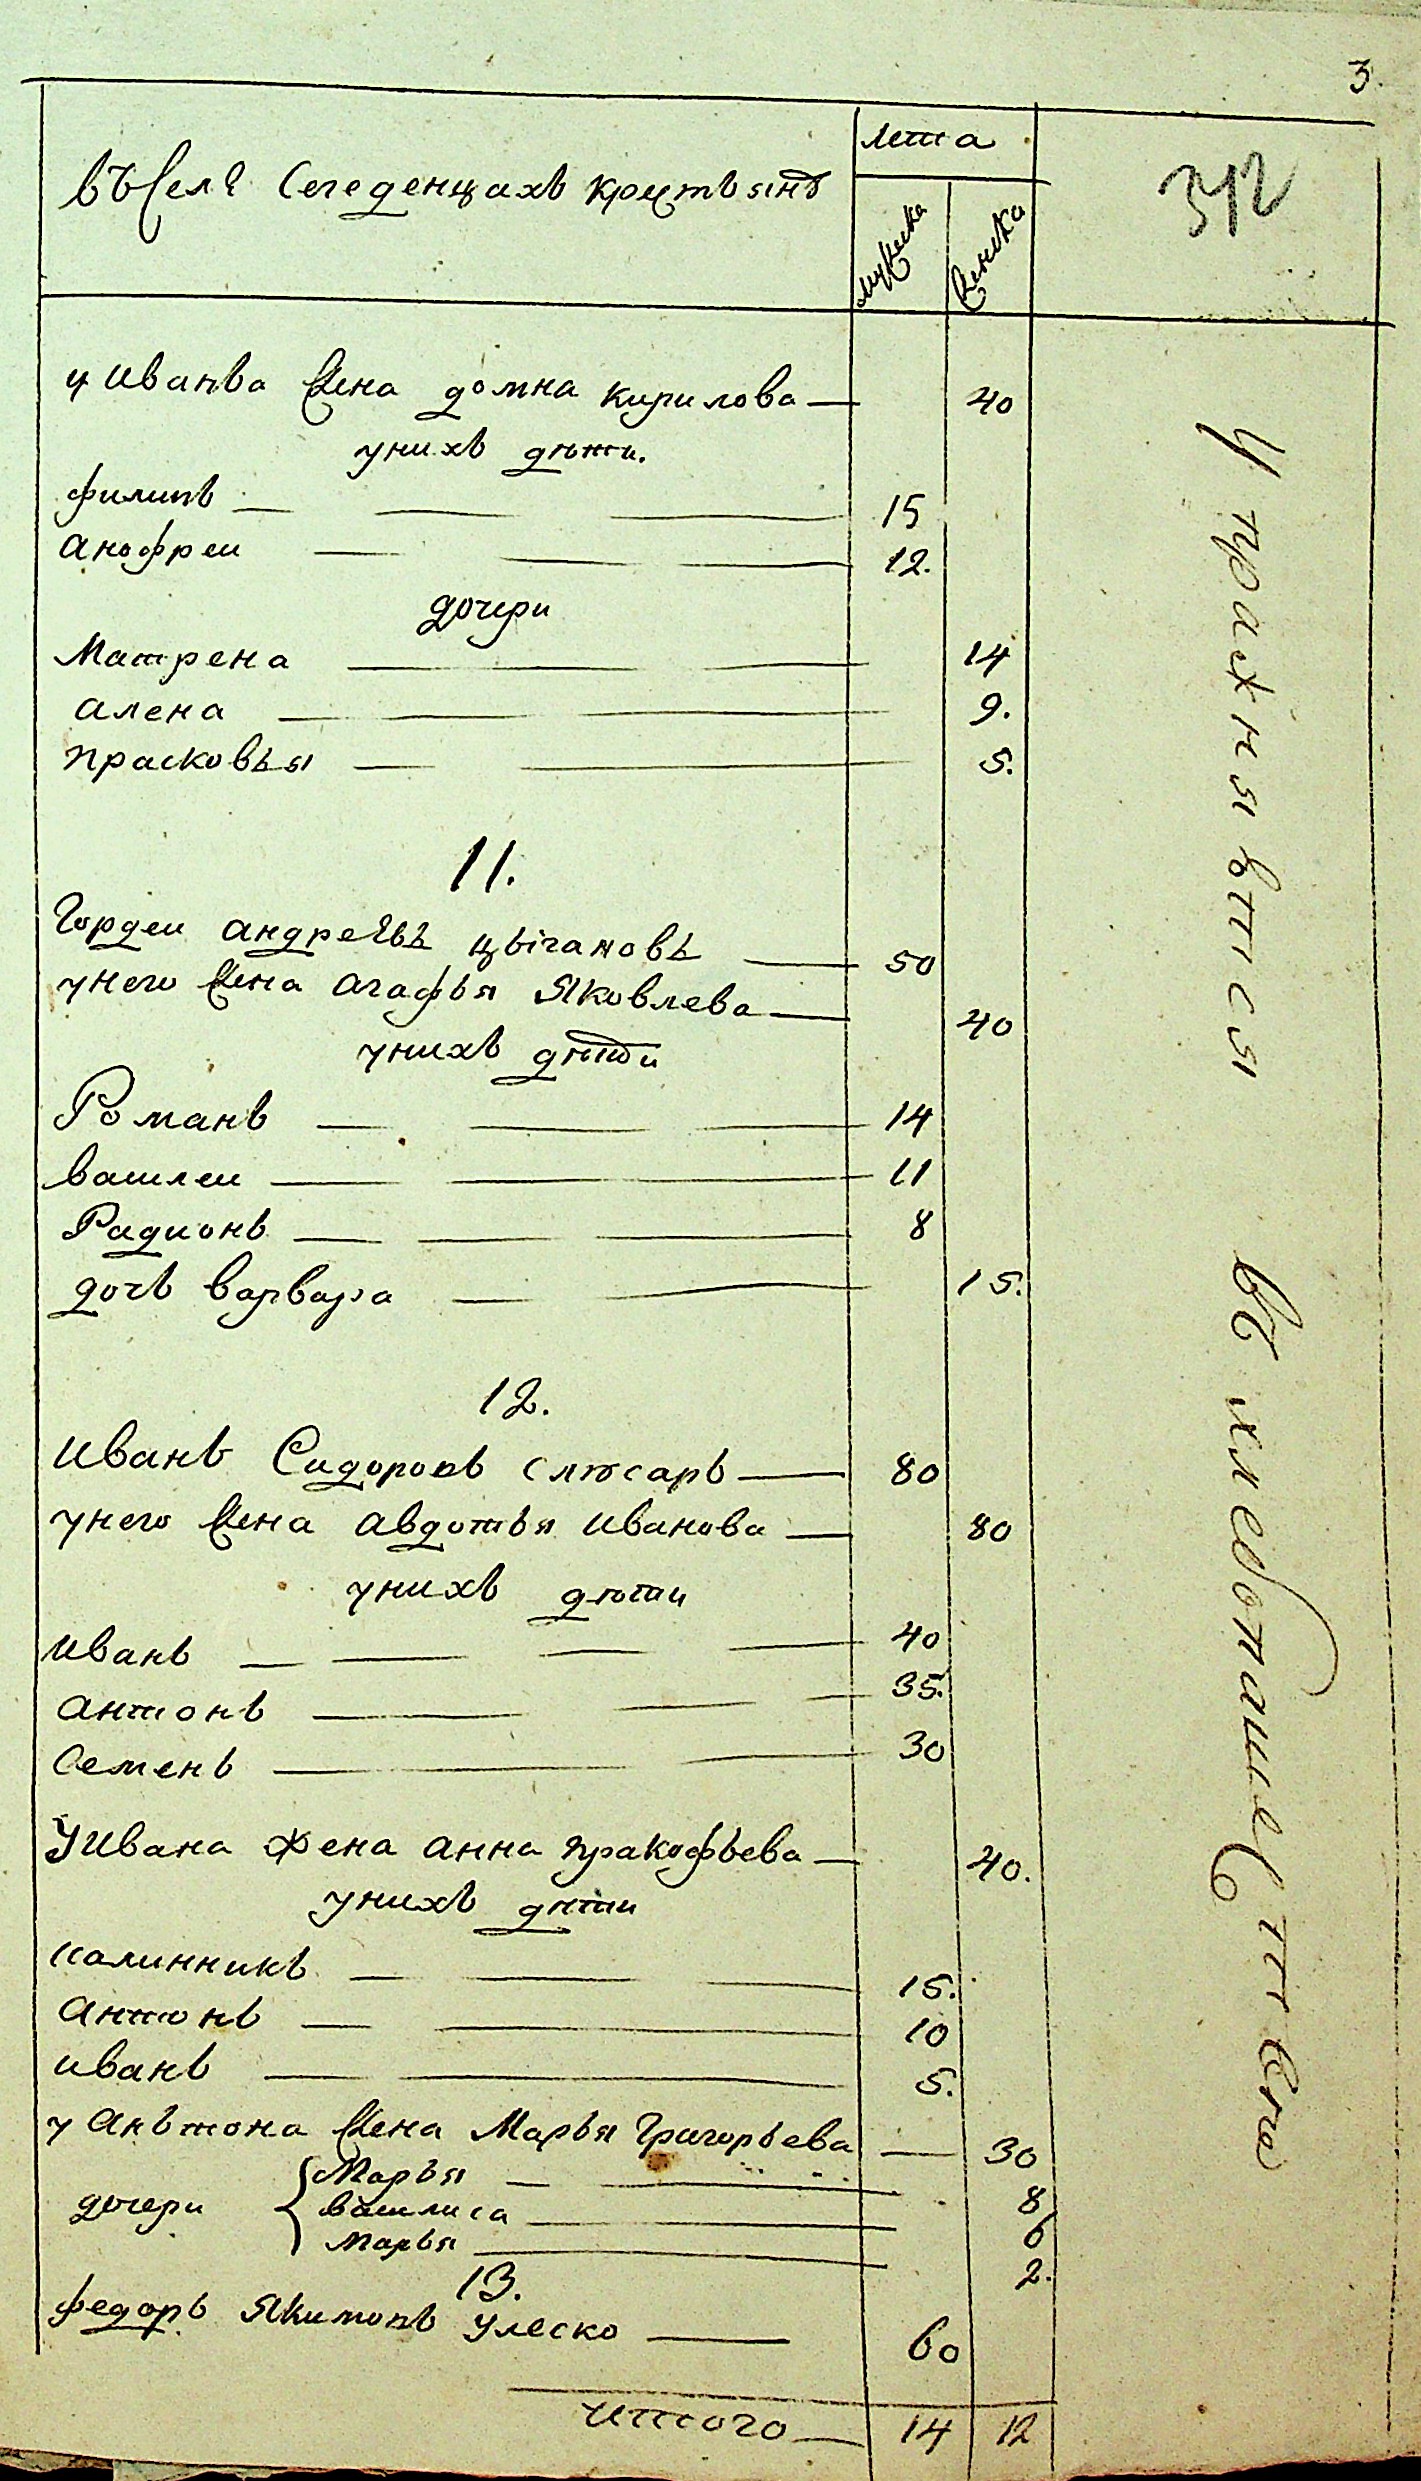 3.
въ Селѣ Сегеденцахъ крестьянъ
лета
мужеска
женска
312
у Иванва жена домна кирилова 40
у нихъ дѣти.
филипъ 15
анофреи 12.
дочери
Матрена 14
алена 9.
прасковья 5.
11.
Гордеи андреѣвъ цыгановъ 50
у него жена агафья Яковлева 40
у нихъ дѣти
Романъ 14
василеи 11
Радионъ 8
дочь варвара 15.
12.
иванъ Сидоровъ слюсарь 80
у него жена авдотья иванова 80
у нихъ дѣти
иванъ 40
антонъ 35.
Семенъ 30
У ивана жена анна пракофьева 40.
у нихъ дѣти
калинникъ 15.
антонъ 10
иванъ 5.
у анътона жена Марья Григорьева 30
дочери
Марья 8
василиса 6
марья 2.
13.
федоръ Якимовъ улеско 60
итого 14 12
Упражняютсы
въ хлебопашество